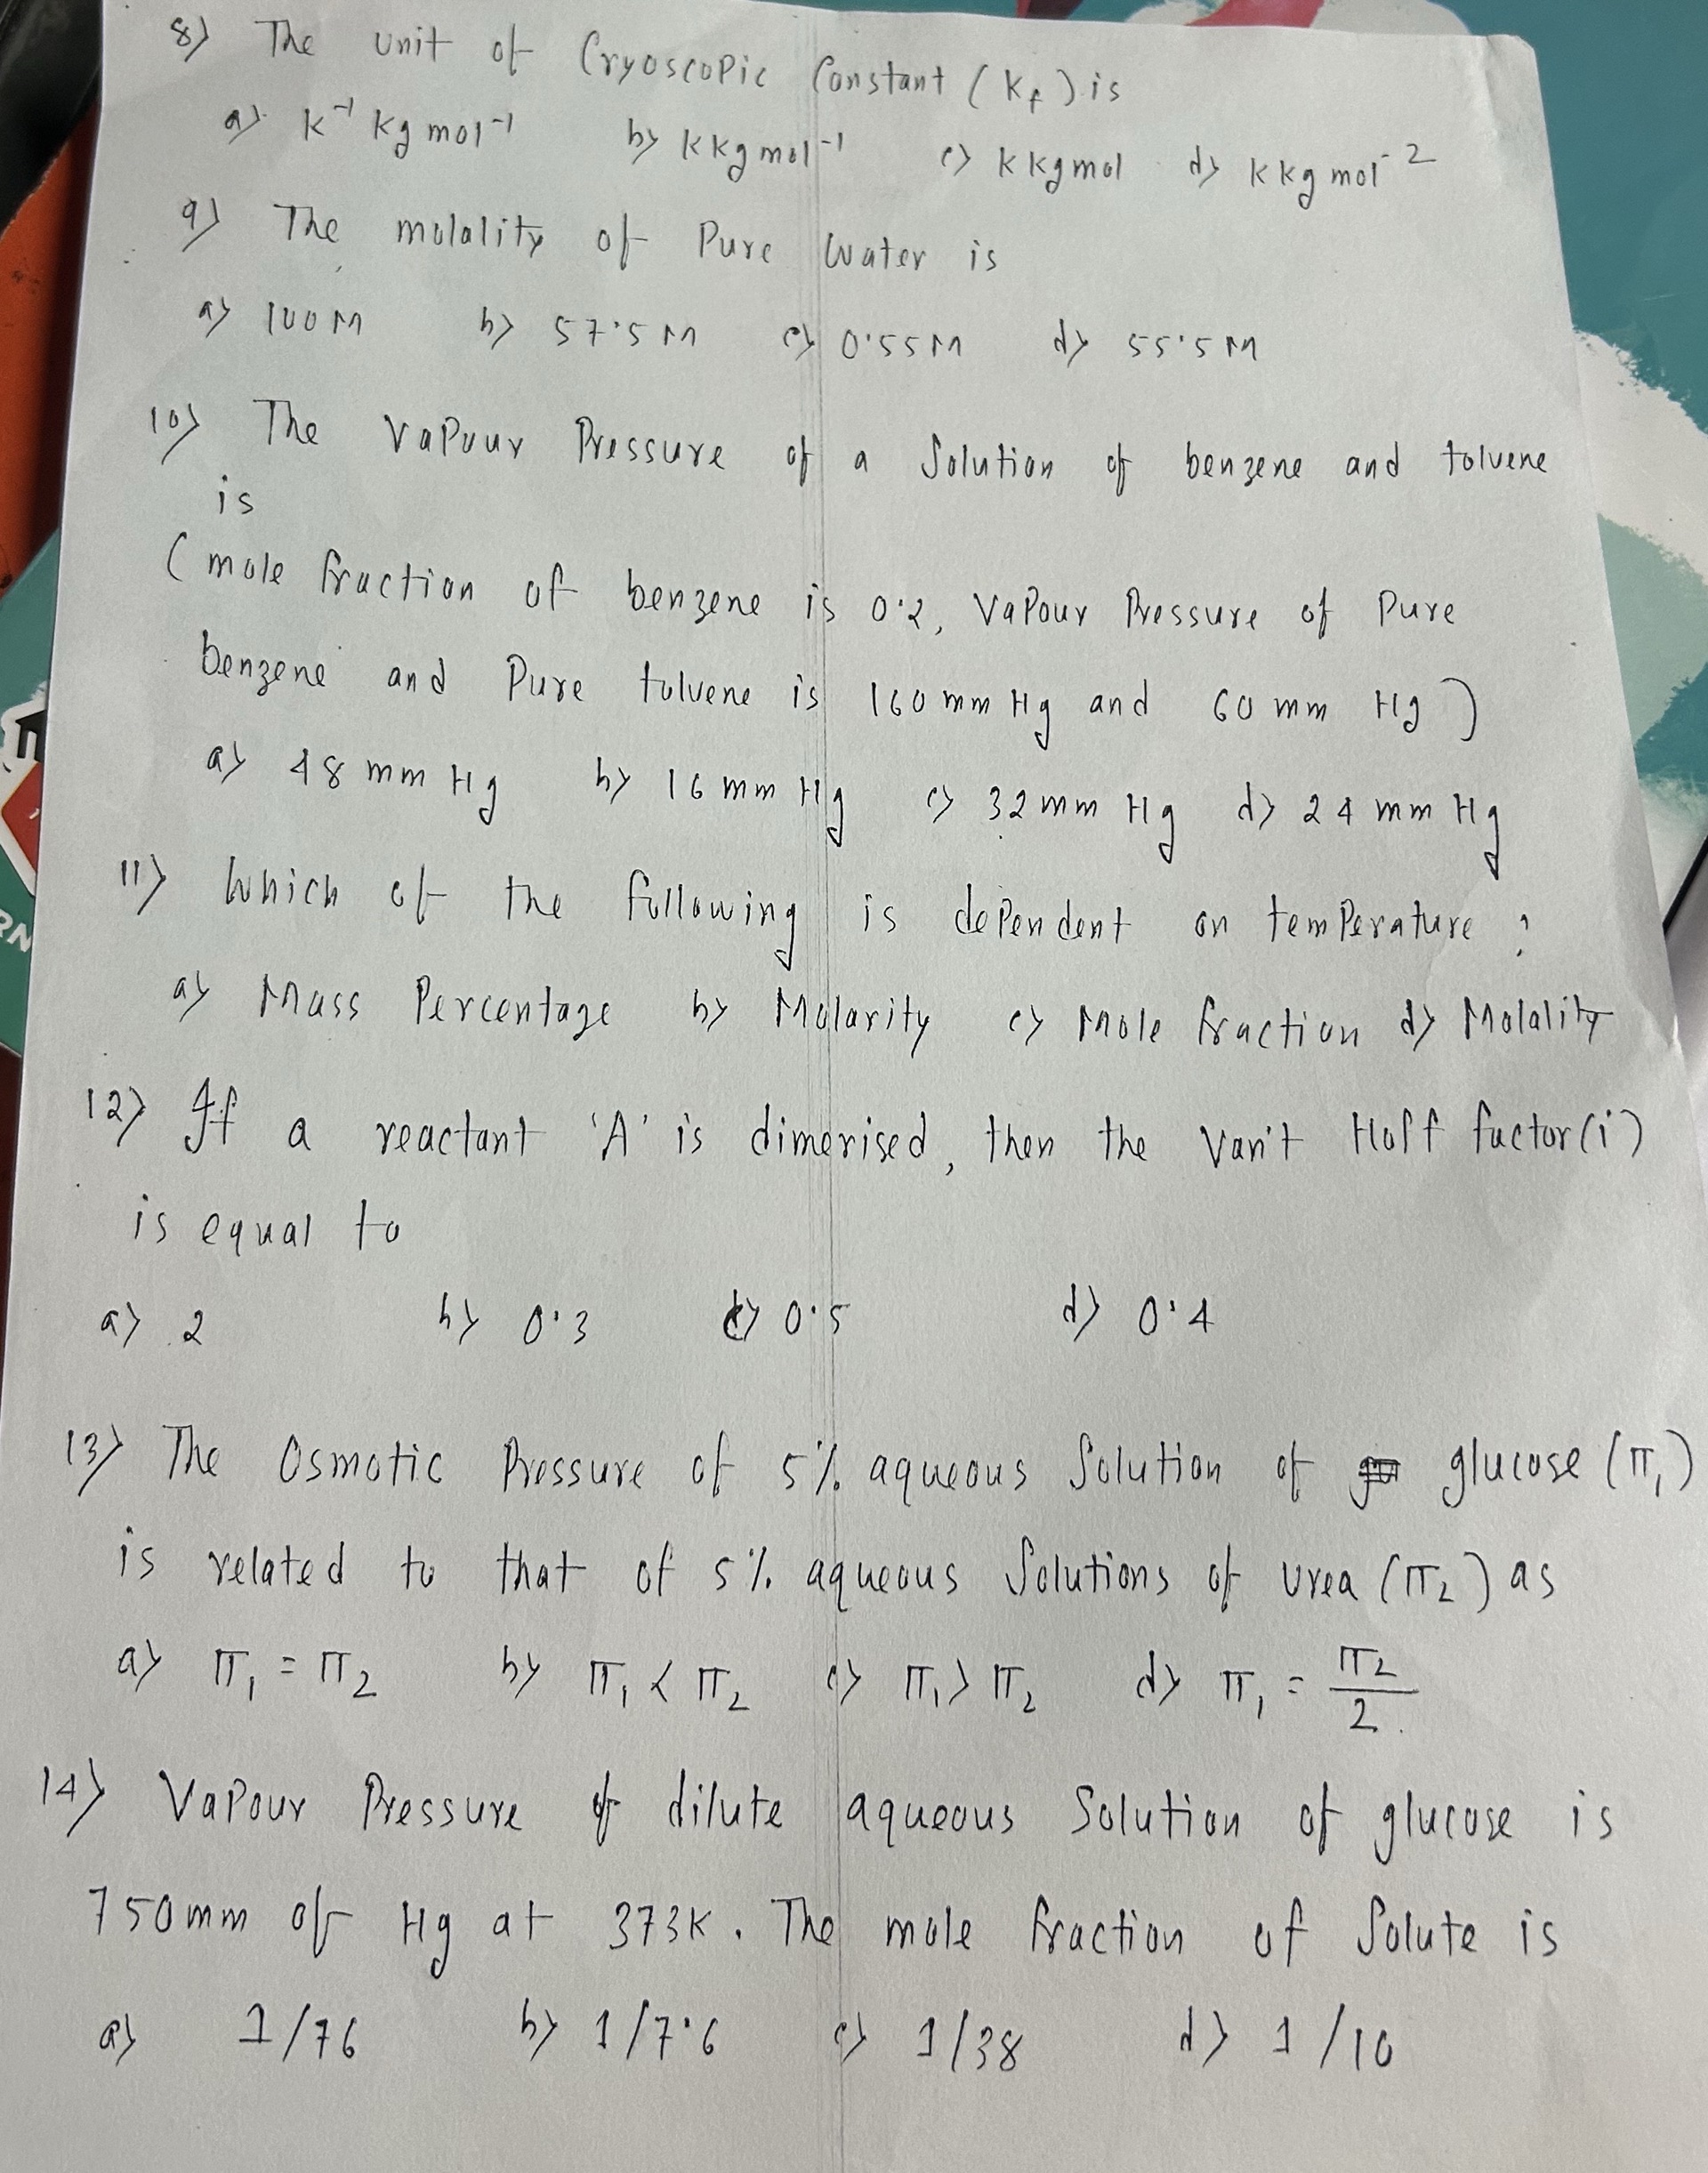 8) The unit of Cryoscopic Constant (Kf) is
a) K⁻¹ Kg mol⁻¹ b) K kg mol⁻¹ c) K kg mol d) K kg mol⁻²
9) The molality of Pure Water is
a) 100 M b) 57.5 M c) 0.55 M d) 55.5 M
10) The Vapour Pressure of a Solution of benzene and toluene
is
(mole fraction of benzene is 0.2, Vapour Pressure of Pure
benzene and Pure toluene is 160 mm Hg and 60 mm Hg)
a) 48 mm Hg b) 16 mm Hg c) 32 mm Hg d) 24 mm Hg
11) Which of the following is dependent on temperature ?
a) Mass Percentage b) Molarity c) Mole fraction d) Molality
12) If a reactant 'A' is dimerised, then the Van't Hoff factor (i)
is equal to
a) 2 b) 0.3 c) 0.5 d) 0.4
13) The Osmotic Pressure of 5% aqueous Solution of glucose (π₁)
is related to that of 5% aqueous Solutions of urea (π₂) as
a) π₁ = π₂ b) π₁ < π₂ c) π₁ > π₂ d) π₁ = π₂/2
14) Vapour Pressure of dilute aqueous Solution of glucose is
750 mm of Hg at 373K. The mole fraction of Solute is
a) 1/76 b) 1/7.6 c) 1/38 d) 1/10